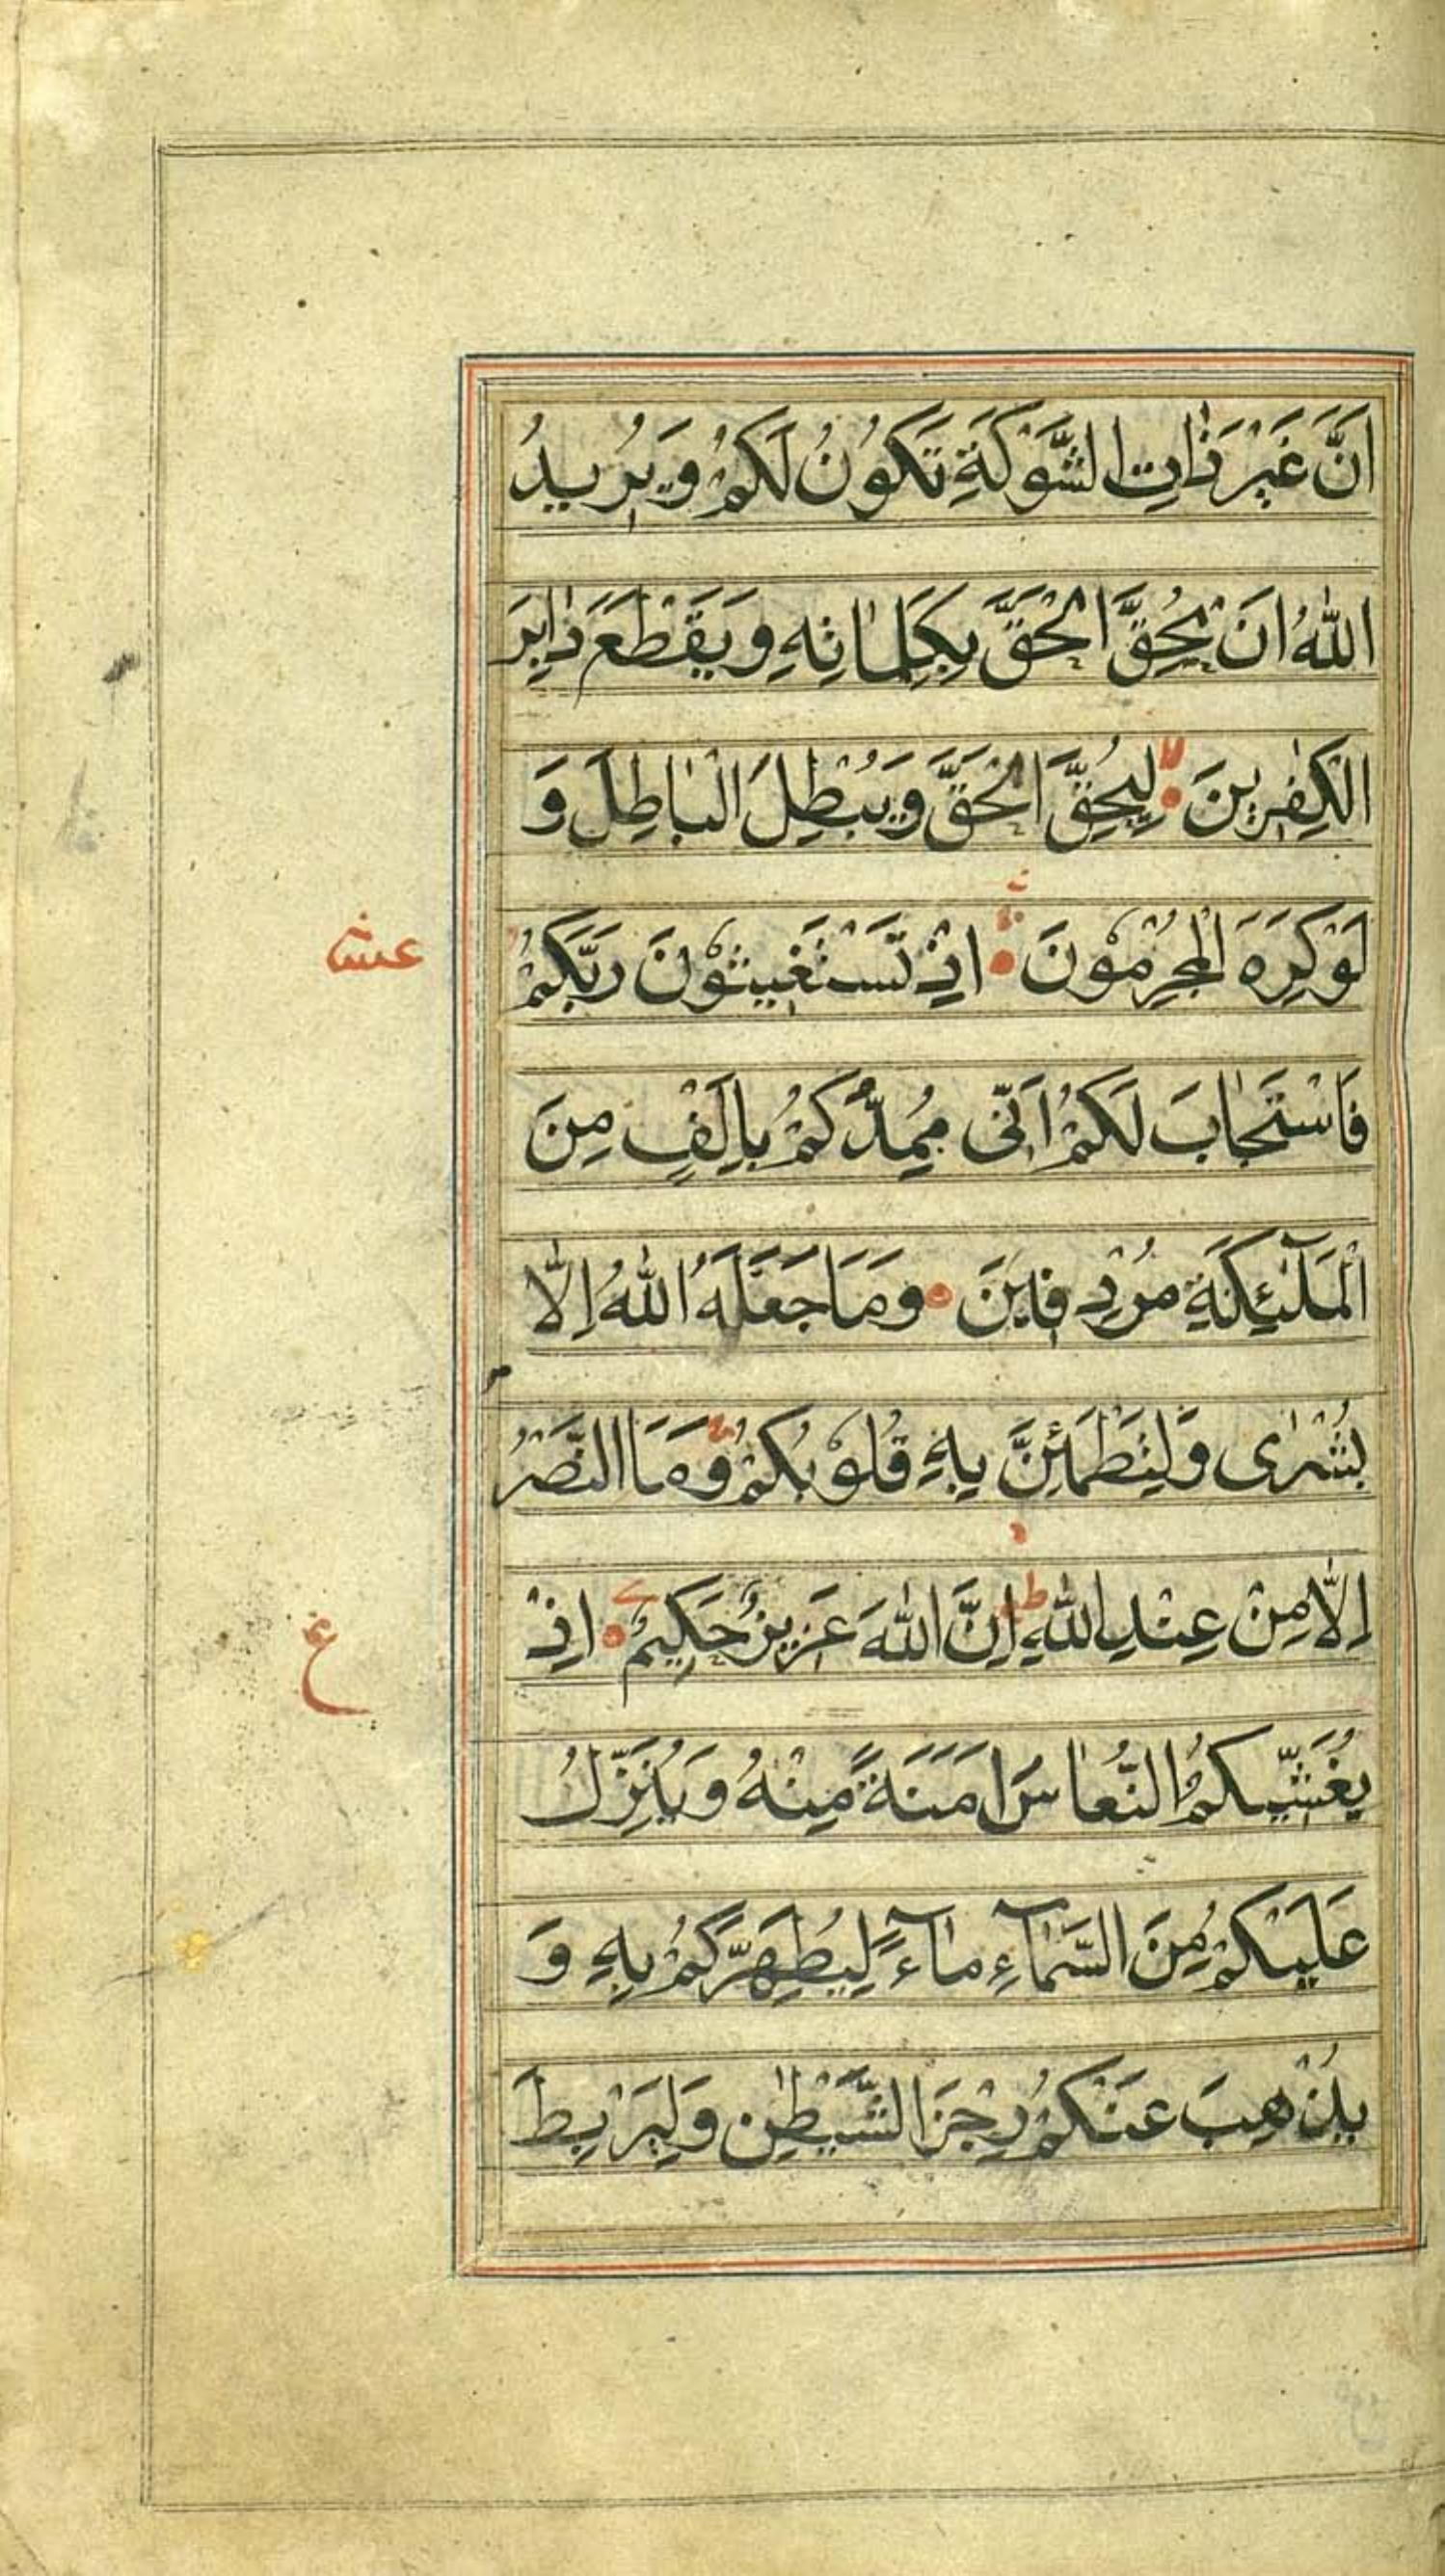 اَنَّ غَيْرَ ذَاتِ الشَّوْكَةِ تَكُوْنُ لَكُمْ وَيُرِيدُ
اللّٰهُ اَنْ يُحِقَّ الْحَقَّ بِكَلِمٰاتِهِ وَيَقْطَعَ دٰابِرَ
الْكٰفِرِينَ لا لِيُحِقَّ الْحَقَّ وَيُبْطِلَ الْبٰاطِلَ وَ
لَوْ كَرِهَ الْمُجْرِمُوْنَ اِذْ تَسْتَغِيثُوْنَ رَبَّكُمْ
عشر
فَاسْتَجٰابَ لَكُمْ اَنّى مُمِدُّكُمْ بِاَلْفٍ مِنَ
الْمَلٰٓئِكَةِ مُرْدِفِينَ وَمَا جَعَلَهُ اللّٰهُ اِلَّا
بُشْرٰى وَلِتَطْمَئِنَّ بِهِ قُلُوْبُكُمْ وَمَا النَّصْرُ
اِلَّا مِنْ عِنْدِ اللّٰهِ ط اِنَّ اللّٰهَ عَزِيزٌ حَكِيمٌ اِذْ
ع
يُغَشِّيكُمُ النُّعٰاسَ اَمَنَةً مِنْهُ وَيُنَزِّلُ
عَلَيْكُمْ مِنَ السَّمٰٓاءِ مٰٓاءً لِيُطَهِّرَكُمْ بِهِ وَ
يُذْهِبَ عَنْكُمْ رِجْزَ الشَّيْطٰنِ وَلِيَرْبِطَ